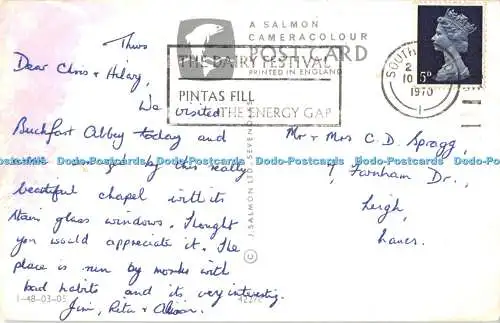 A SALMON
CAMERACOLOUR
POST CARD
PRINTED IN ENGLAND
THE DAIRY FESTIVAL
PINTAS FILL
THE ENERGY GAP
SOUTH
2
10
1970
5D
Thurs
Dear Chris & Hilary,
We visited
Buckfast Abbey today and
by this really
beautiful chapel with its
stain glass windows. Thought
you would appreciate it. The
place is run by monks with
bad habits and its very interesting.
Jim, Rita & Alison.
Mr & Mrs C. D. Spragg,
7, Farnham Dr.,
Leigh,
Lancs.
© J. SALMON LTD. SEVENOAKS
1-48-03-05
Dodo-Postcards Dodo-Postcards Dodo-Postcards Dodo-Postcards Dodo-Postcards Dodo-Postcards